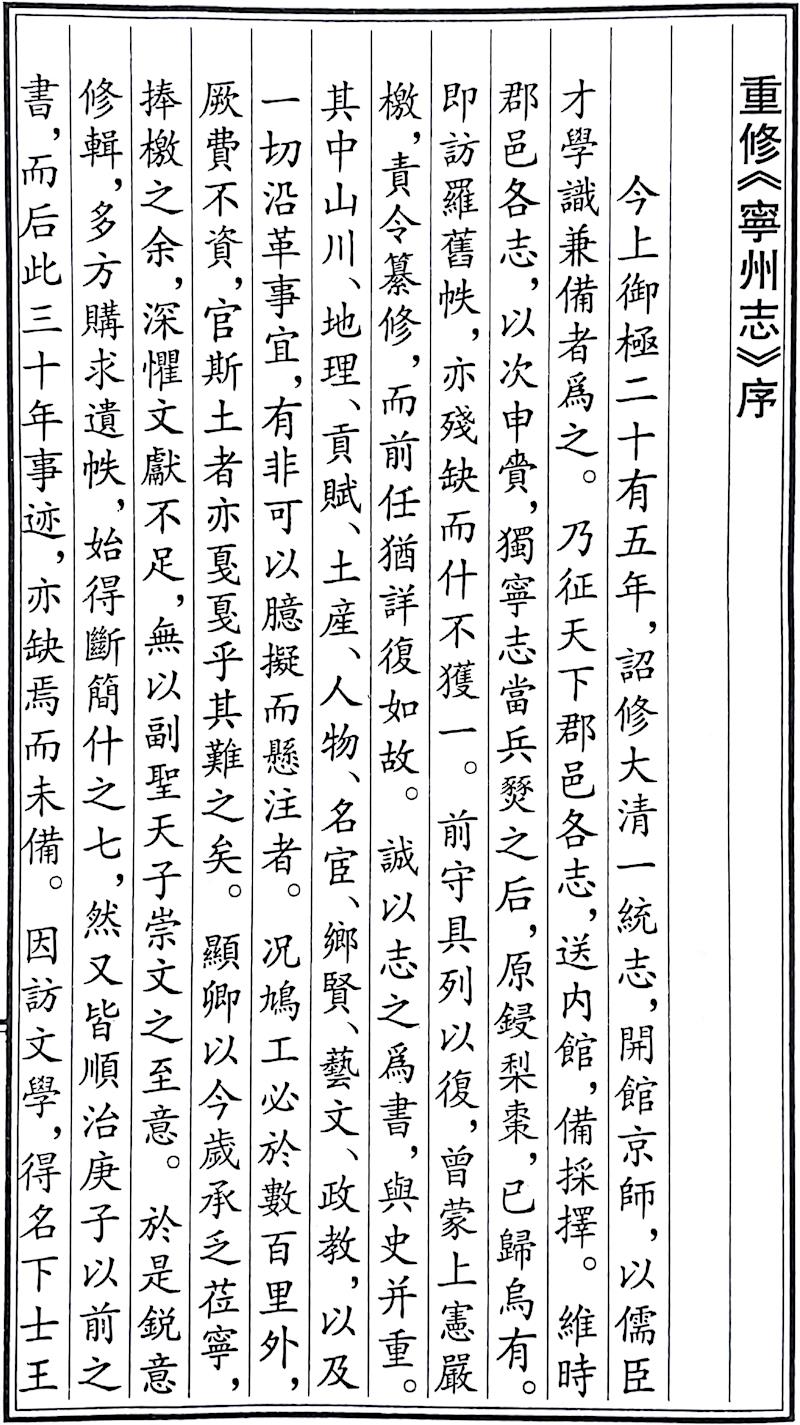 重修《寧州志》序
今上御極二十有五年，詔修大清一統志，開館京師，以儒臣
才學識兼備者爲之。乃征天下郡邑各志，送内館，備採擇。維時
郡邑各志，以次申賫，獨寧志當兵燹之后，原鋟梨棗，已歸烏有。
即訪羅舊帙，亦殘缺而什不獲一。前守具列以復，曾蒙上憲嚴
檄，責令纂修，而前任猶詳復如故。誠以志之爲書，與史并重。
其中山川、地理、貢賦、土産、人物、名宦、鄉賢、藝文、政教，以及
一切沿革事宜，有非可以臆擬而懸注者。况鳩工必於數百里外，
厥費不資，官斯土者亦戛戛乎其難之矣。顯卿以今歲承乏莅寧，
捧檄之余，深懼文獻不足，無以副聖天子崇文之至意。於是鋭意
修輯，多方購求遺帙，始得斷簡什之七，然又皆順治庚子以前之
書，而后此三十年事迹，亦缺焉而未備。因訪文學，得名下士王